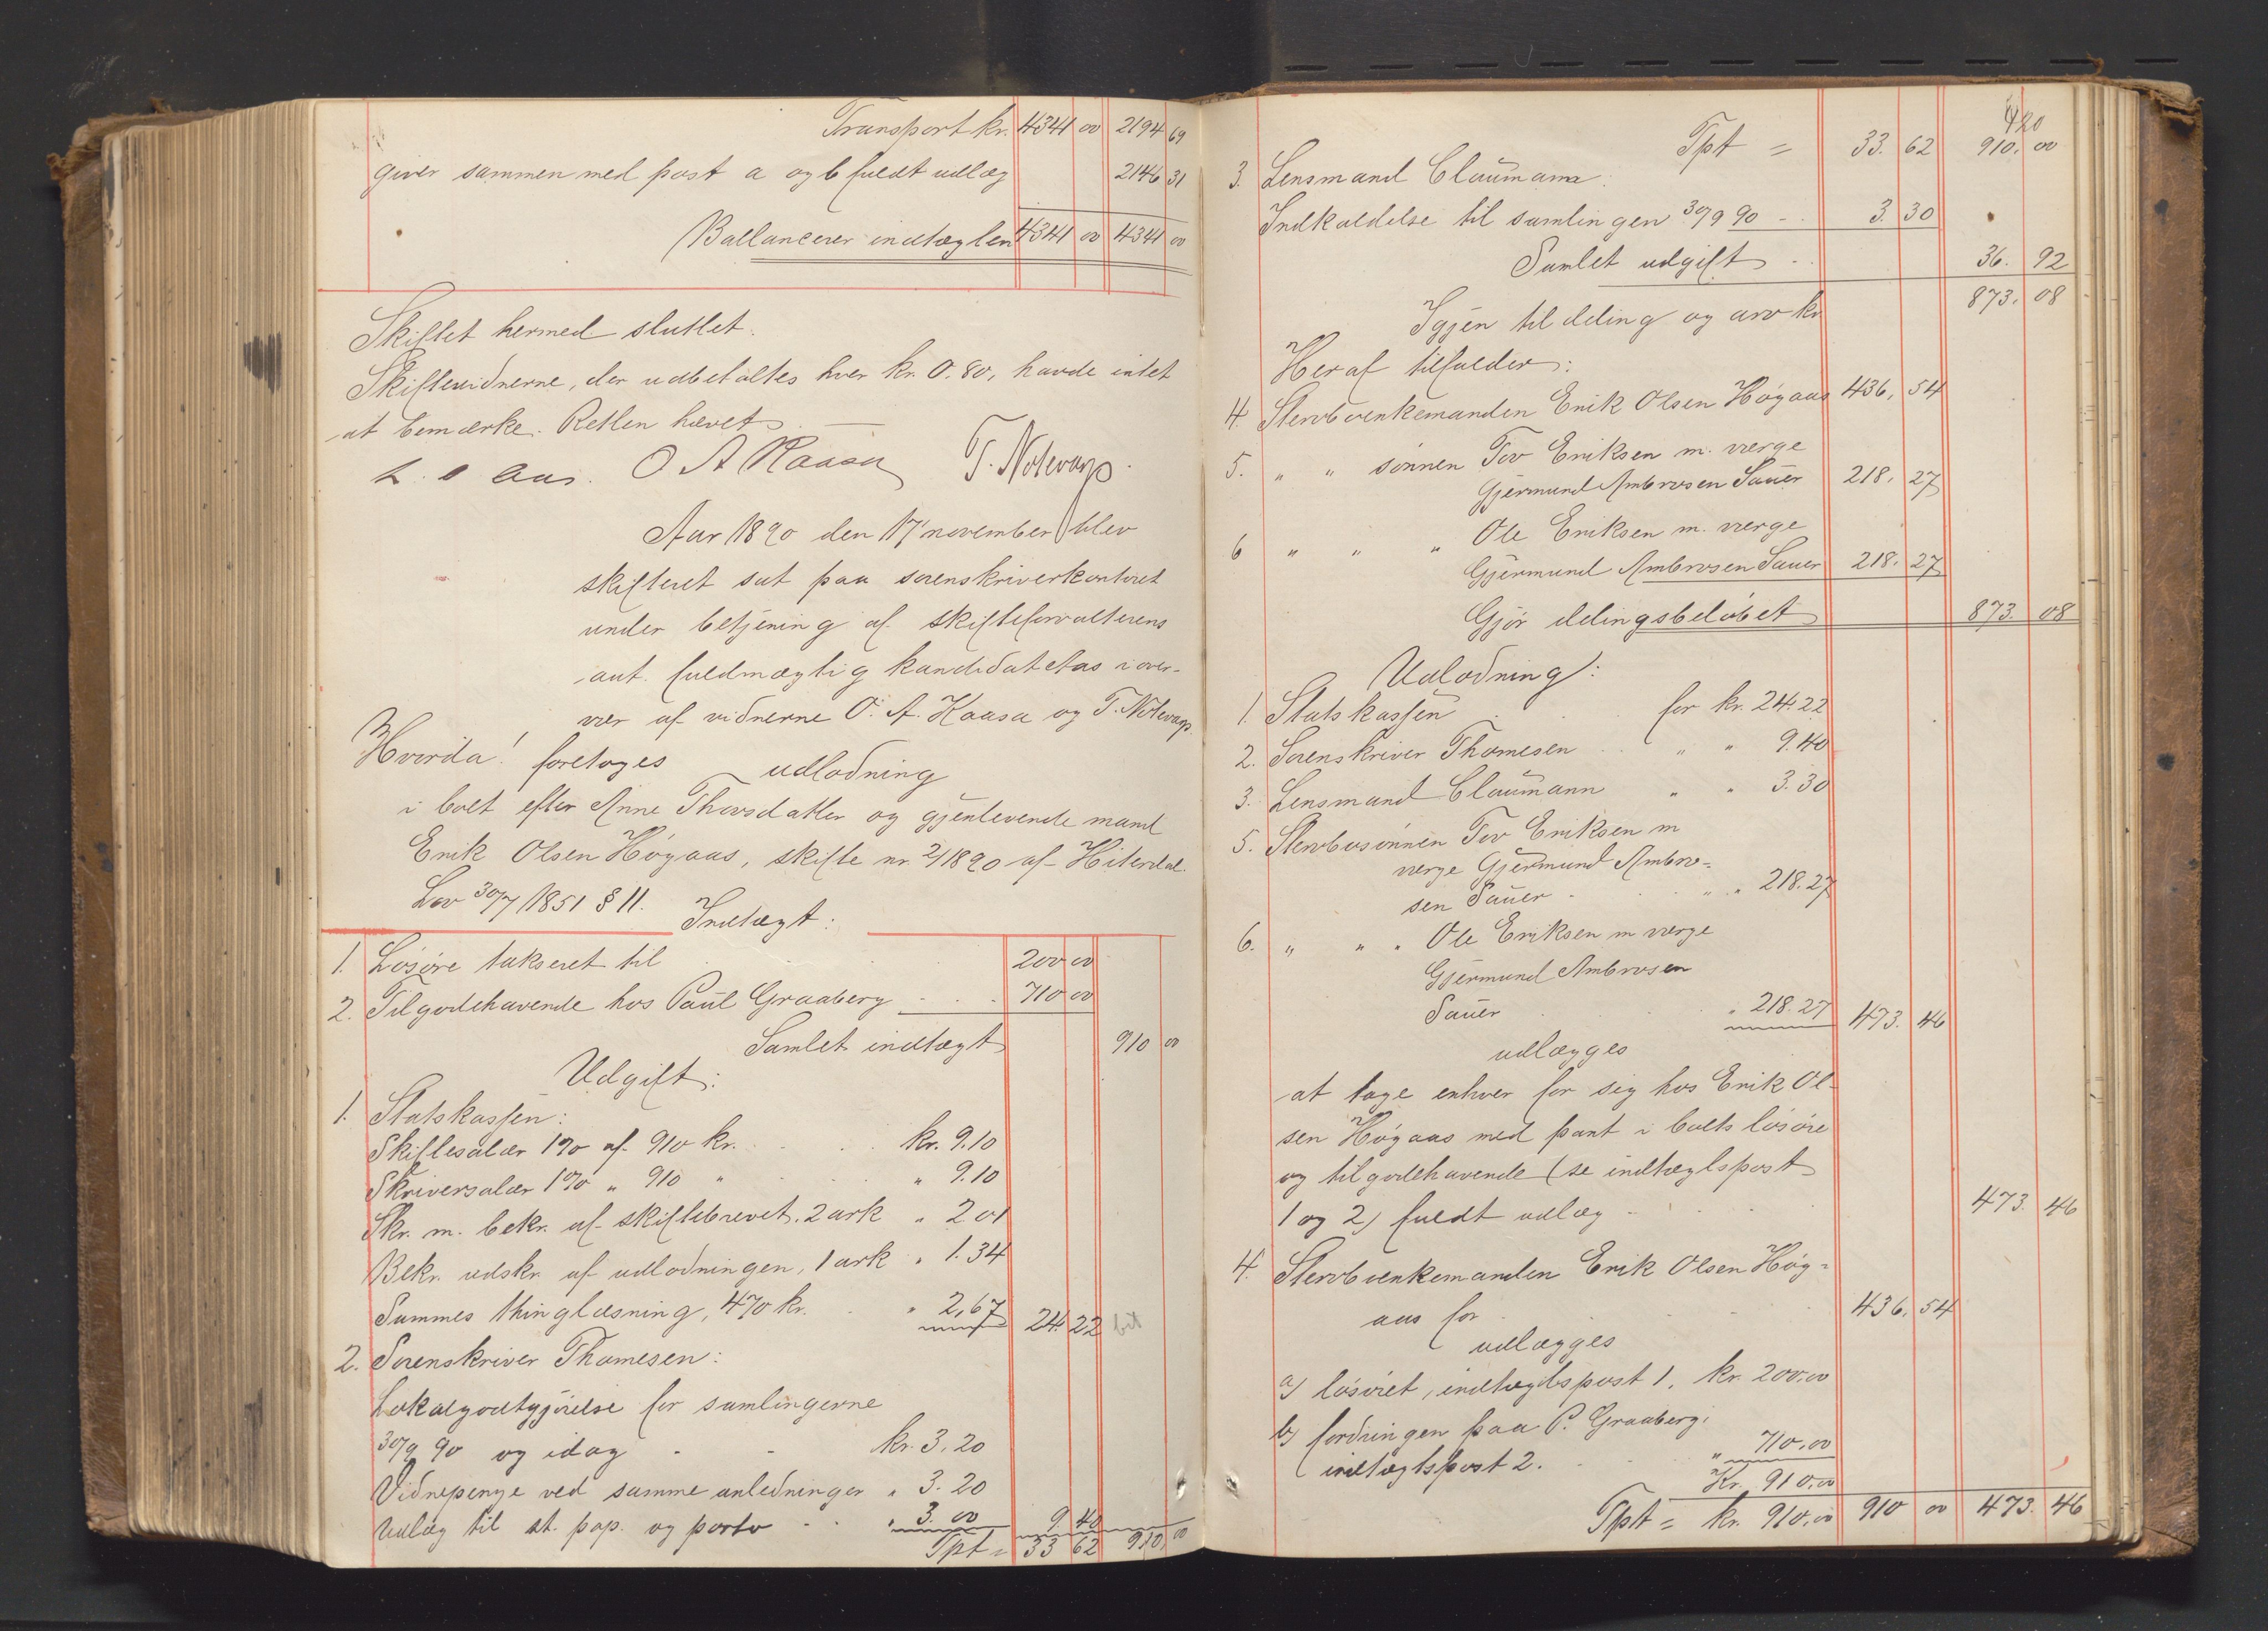 Transport kr. 4341 00 2194 69
giver sammen med post a og b fuldt udlæg 2146 31
Ballancerer indtægten 4341 00 4341 00
Skiftet hermed sluttet.
Skiftevidnerne, der udbetaltes hver kr. 0.80, havde intet
at bemærke. Retten hævet.
L. O. Aas. O A Kaasa T. Notevarp.
Aar 1890 den 17 november blev
skifteret sat paa sorenskriverkontoret
under betjening af skifteforvalterens
aut. fuldmægtig kandidat Aas i over-
vær af vidnerne O. A. Kaasa og T. Notevarp.
Hvorda! foretoges udlodning
i boet efter Anne Thovsdatter og gjenlevende mand
Erik Olsen Høgaas, skifte nr. 2/1890 af Hiterdal.
Lov 30/7 1851 § 11.
Indtægt:
1. Løsøre takseret til 200 00
2. Tilgodehavende hos Paul Graaberg 710 00
Samlet indtægt 910 00
Udgift:
1. Statskassen:
Skiftesalær 1% af 910 kr. kr. 9.10
Skriversalær 1% " 910 " " 9.10
Skr. m. bekr. af skiftebrevet. 2 ark " 2 01
Bekr. udskr. af udlodningen, 1 ark " 1.34
Sammes thinglæsning, 470 kr. " 2,67 24. 22
2. Sorenskriver Thomesen:
Lokalgodtgjørelse for samlingerne
30/9 90 og idag kr. 3.20
Vidnepenge ved samme anledninger " 3.20
Udlæg til st. pap. og porto " 3.00 9. 40
Tpt = 33 62 910, 00
420
Tpt = 33. 62 910. 00
3. Lensmand Claumann:
Indkaldelse til samlingen 30/9 90 3. 30
Samlet udgift 36. 92
Igjen til deling og arv kr 873. 08
Heraf tilfalder:
4. Stervboenkemanden Erik Olsen Høgaas 436, 54
5. " " sønnen Tov Eriksen m. verge
Gjermund Ambrosen Sauer 218. 27
6 " " " Ole Eriksen m. verge
Gjermund Ambrosen Sauer 218. 27
Gjør delingsbeløbet 873. 08
Udlodning:
1. Statskassen for kr. 24.22
2. Sorenskriver Thomesen " " 9.40
3. Lensmand Claumann " " 3.30
5. Stervbosønnen Tov Eriksen m
verge Gjermund Ambro-
sen Sauer " " 218.27
6. " " " Ole Eriksen m verge
Gjermund Ambrosen
Sauer " 218.27 473. 46
udlægges
at tage enhver for sig hos Erik Ol-
sen Høgaas med pant i boets løsøre
og tilgodehavende (se indtægtspost
1 og 2) fuldt udlæg 473. 46
4. Stervboenkemanden Erik Olsen Høg-
aas for 436, 54
udlægges
a) løsøret, indtægtspost 1. kr. 200,00
b) fordringen paa P. Graaberg,
indtægtspost 2. " 710,00
Kr. 910,00
Tpt = kr. 910,00 910 00 473. 46